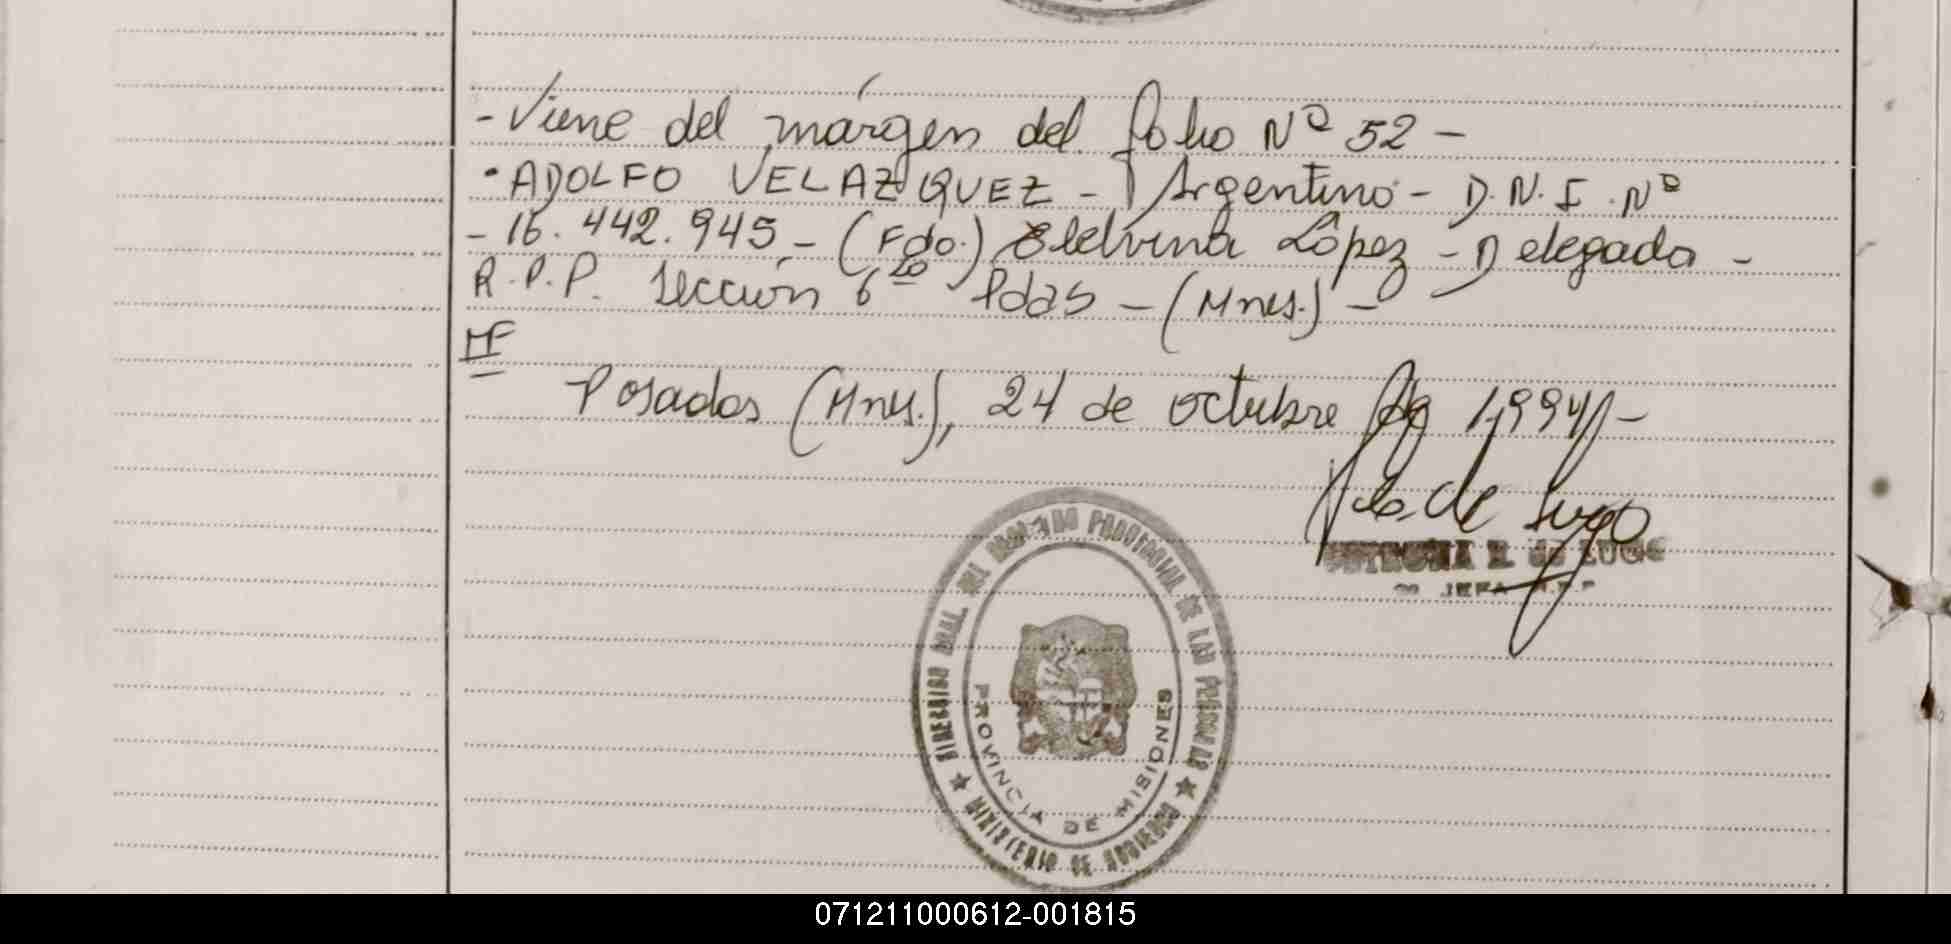 - Viene del márgen del folio Nº 52 -
- ADOLFO VELAZQUEZ - Argentino - D.N.I. Nº
- 16.442.945 - (Fdo.) Eledvina López - Delegada -
R.P.P. Sección 6ta Pdas - (Mnes.) -
Posadas (Mnes.), 24 de octubre de 1,994 -
R. de LUGO
JEFA R.P.P.
DIRECCION GRAL. DEL REGISTRO PROVINCIAL DE LAS PERSONAS
PROVINCIA DE MISIONES
MINISTERIO DE GOBIERNO
071211000612-001815